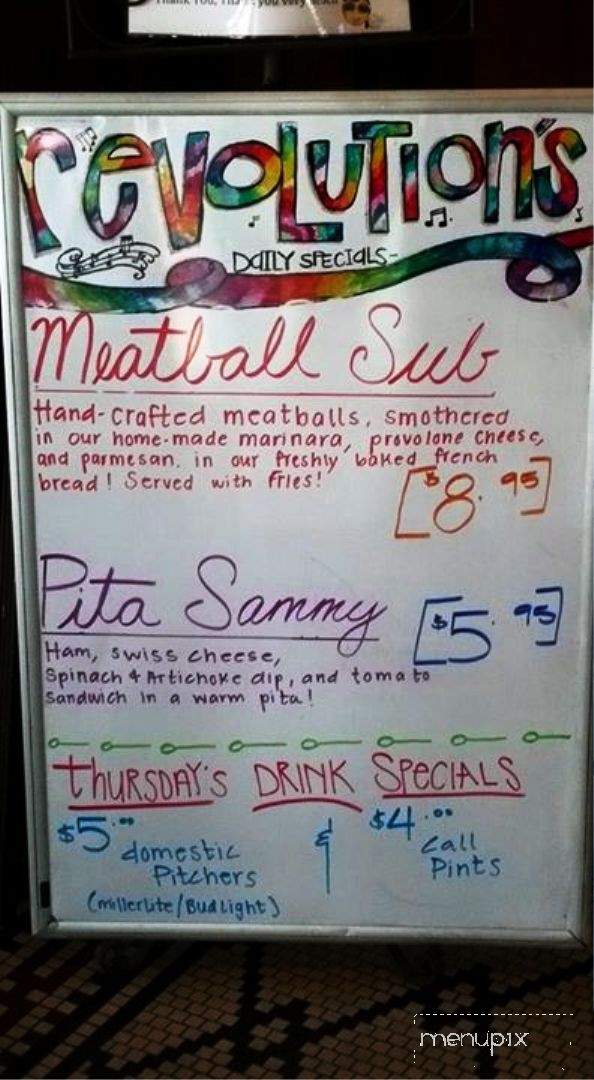 Thank You, Thank you very much
revolution's
DAILY SPECIALS-
Meatball Sub
Hand-crafted meatballs, smothered
in our home-made marinara, provolone cheese,
and parmesan. in our freshly baked french
bread! Served with fries!
[$8.95]
Pita Sammy
[$5.95]
Ham, swiss cheese,
Spinach & Artichoke dip, and tomato
sandwich in a warm pita!
thURSDAY'S DRINK SPECIALS
$5.00 & $4.00
domestic Call
Pitchers Pints
(millerlite/Bud Light)
menupix